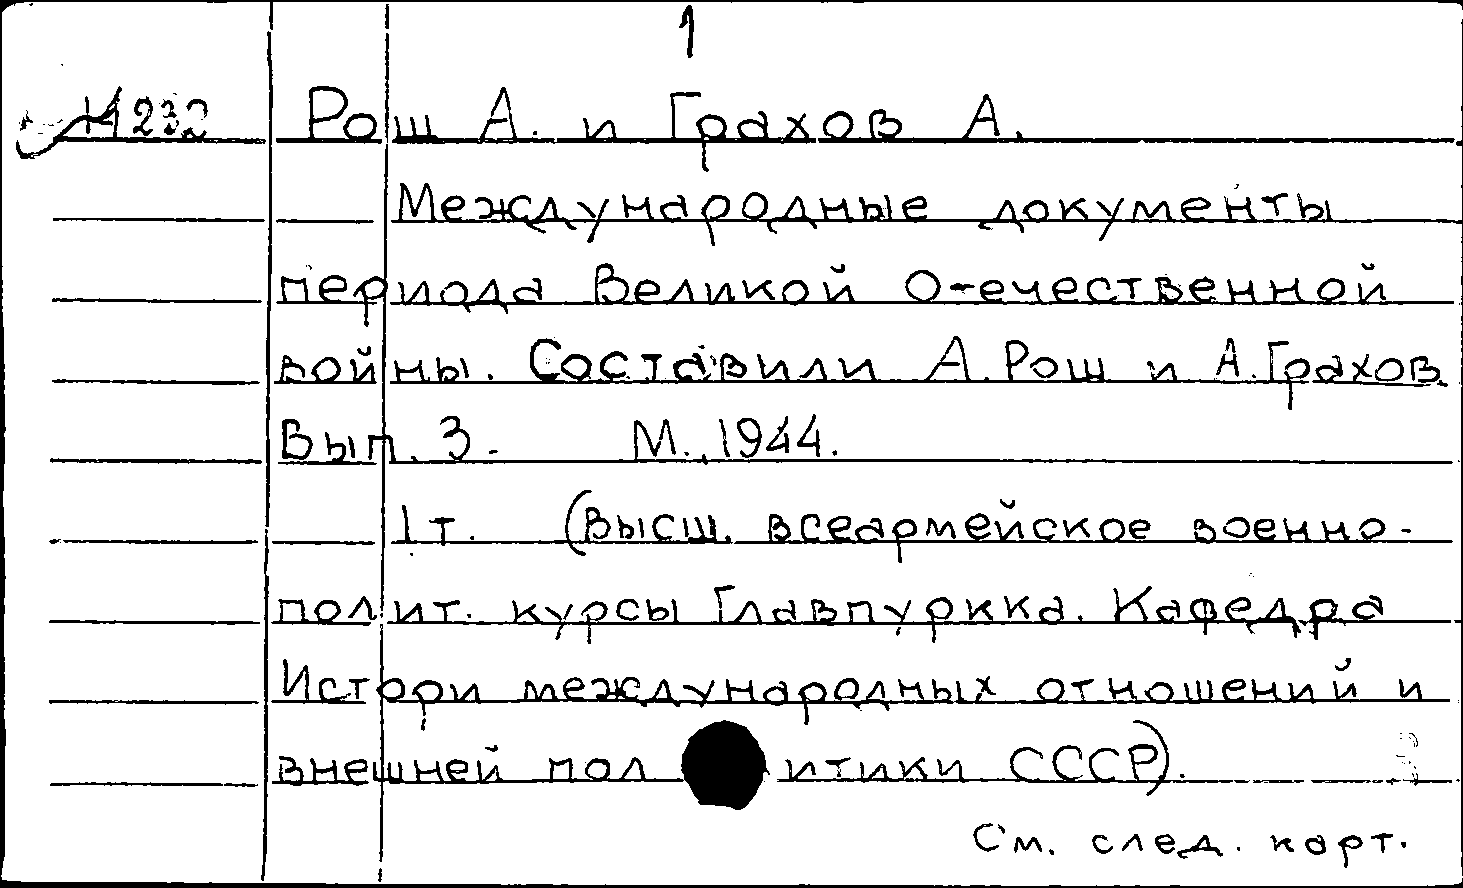 1
И232 Рош А. и Грахов А.
Международные документы
периода Великой Отечественной
войны. Составили А. Рош и А. Грахов
Вып. 3. М., 1944.
1 т. (Высш. всеармейское военно-
полит. курсы Главпуркка. Кафедра
Истори международных отношений и
внешней пол итики СССР).
См. след. карт.